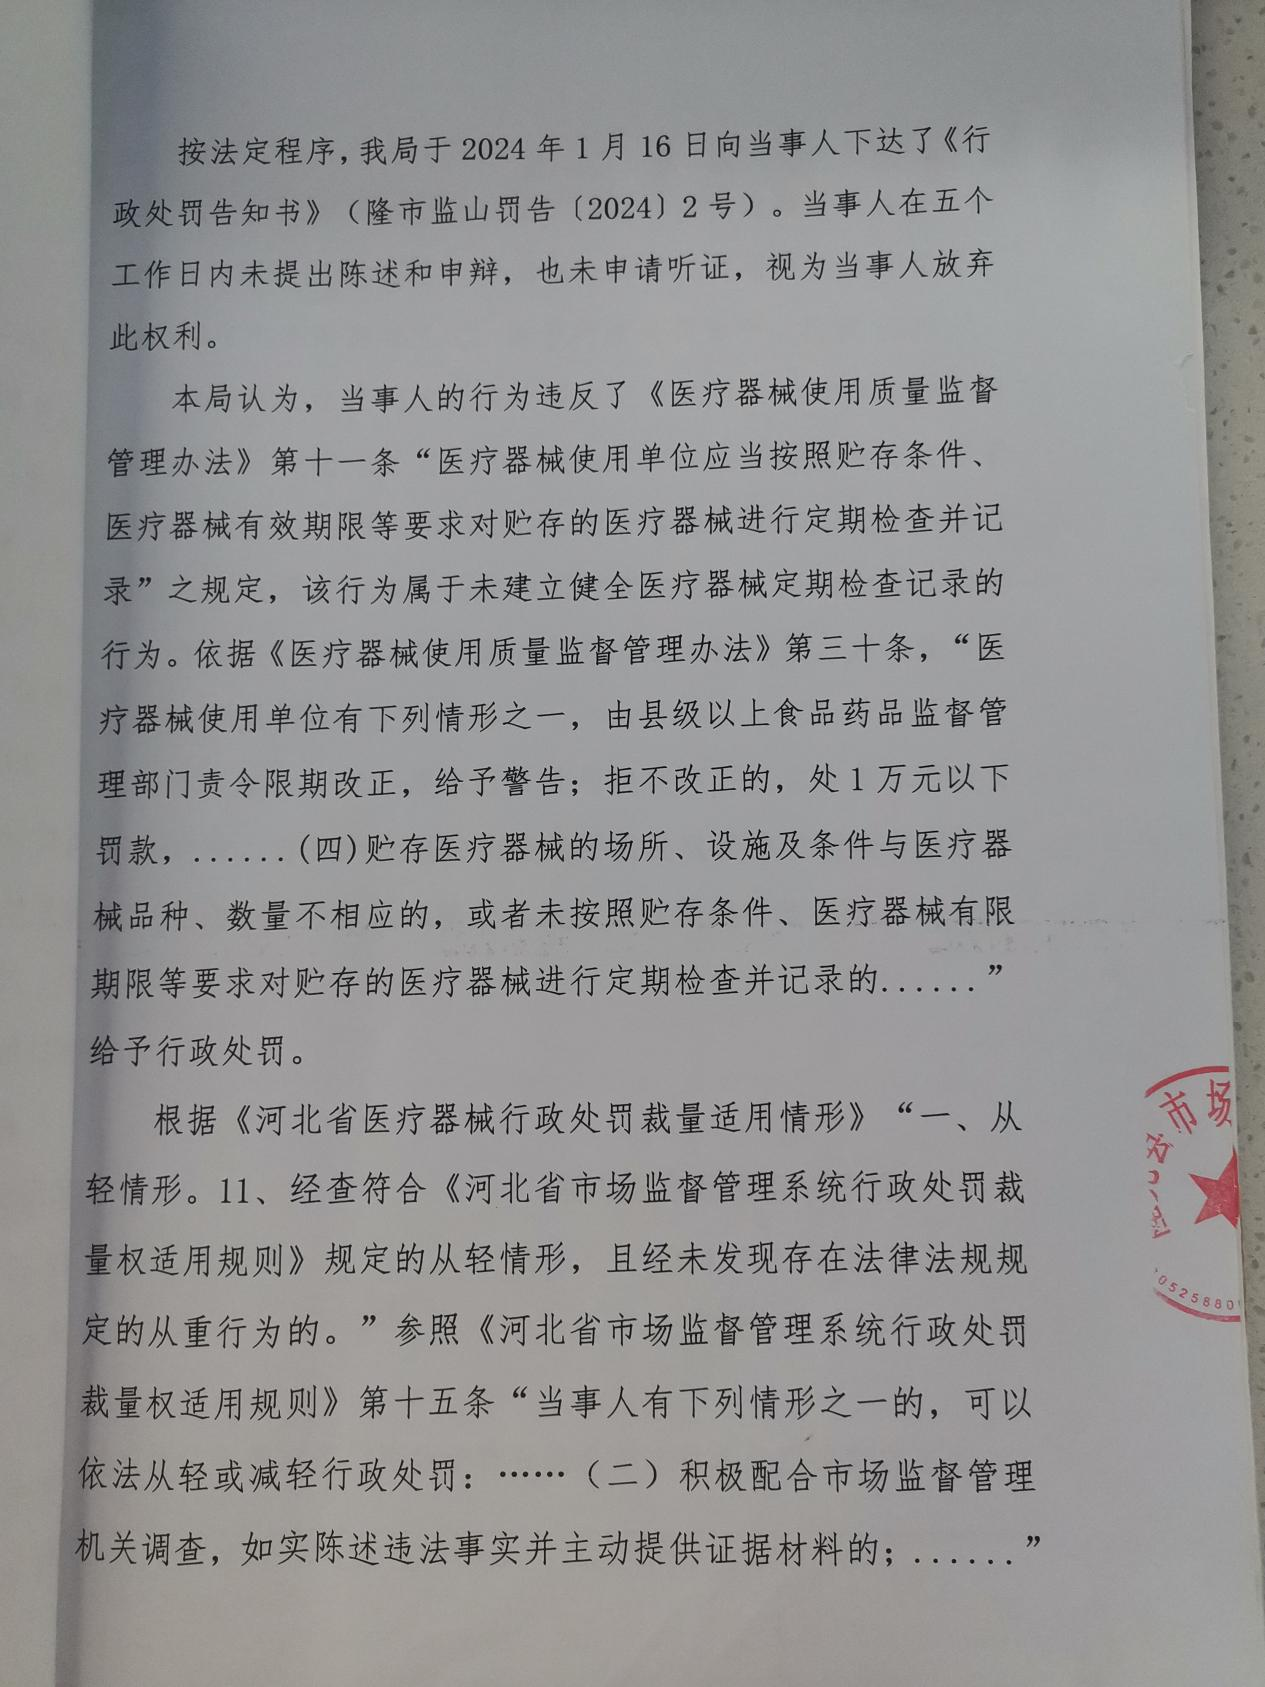 按法定程序，我局于 2024 年 1 月 16 日向当事人下达了《行
政处罚告知书》（隆市监山罚告〔2024〕2 号）。当事人在五个
工作日内未提出陈述和申辩，也未申请听证，视为当事人放弃
此权利。
本局认为，当事人的行为违反了《医疗器械使用质量监督
管理办法》第十一条“医疗器械使用单位应当按照贮存条件、
医疗器械有效期限等要求对贮存的医疗器械进行定期检查并记
录”之规定，该行为属于未建立健全医疗器械定期检查记录的
行为。依据《医疗器械使用质量监督管理办法》第三十条，“医
疗器械使用单位有下列情形之一，由县级以上食品药品监督管
理部门责令限期改正，给予警告；拒不改正的，处 1 万元以下
罚款，......(四)贮存医疗器械的场所、设施及条件与医疗器
械品种、数量不相应的，或者未按照贮存条件、医疗器械有限
期限等要求对贮存的医疗器械进行定期检查并记录的......”
给予行政处罚。
根据《河北省医疗器械行政处罚裁量适用情形》“一、从
轻情形。11、经查符合《河北省市场监督管理系统行政处罚裁
量权适用规则》规定的从轻情形，且经未发现存在法律法规规
定的从重行为的。”参照《河北省市场监督管理系统行政处罚
裁量权适用规则》第十五条“当事人有下列情形之一的，可以
依法从轻或减轻行政处罚：……（二）积极配合市场监督管理
机关调查，如实陈述违法事实并主动提供证据材料的；......”
市场
0525880